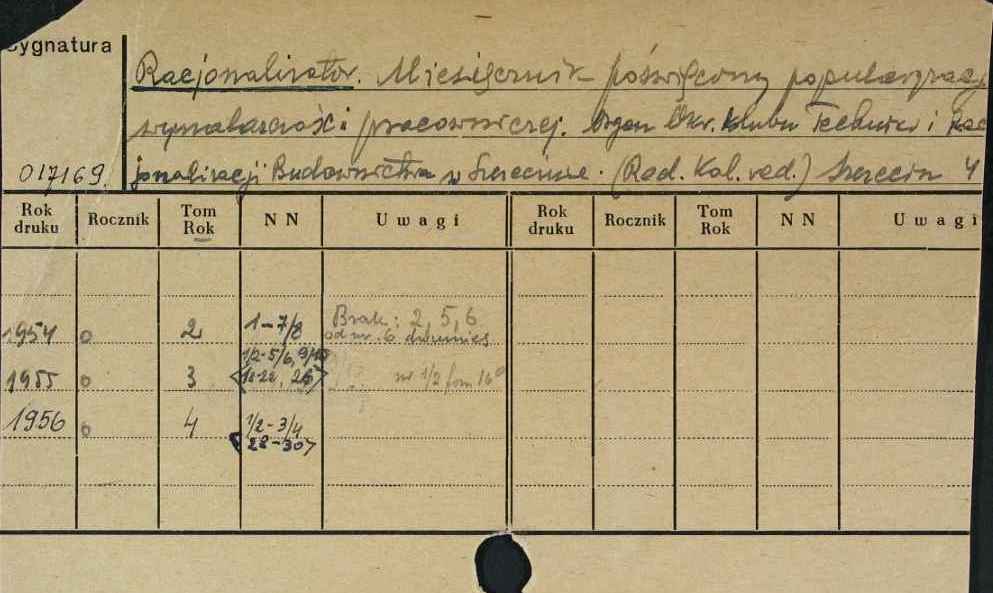 Sygnatura
Racjonalizator. Miesięcznik poświęcony popularyzacji
wynalazczości pracowniczej. Organ Okr. Klubu Techniki i Rac
017169. jonalizacji Budownictwa w Szczecinie. (Red. Kol. red.) Szczecin 4
Rok druku Rocznik Tom Rok NN Uwagi Rok druku Rocznik Tom Rok NN Uwagi
1954 0 2 1-7/8 Brak: 2, 5, 6
od nr. 6 dwumies
1/2-5/6, 9/10
1955 0 3 nr 1/2 form 16°
1956 0 4 1/2-3/4
28-30>